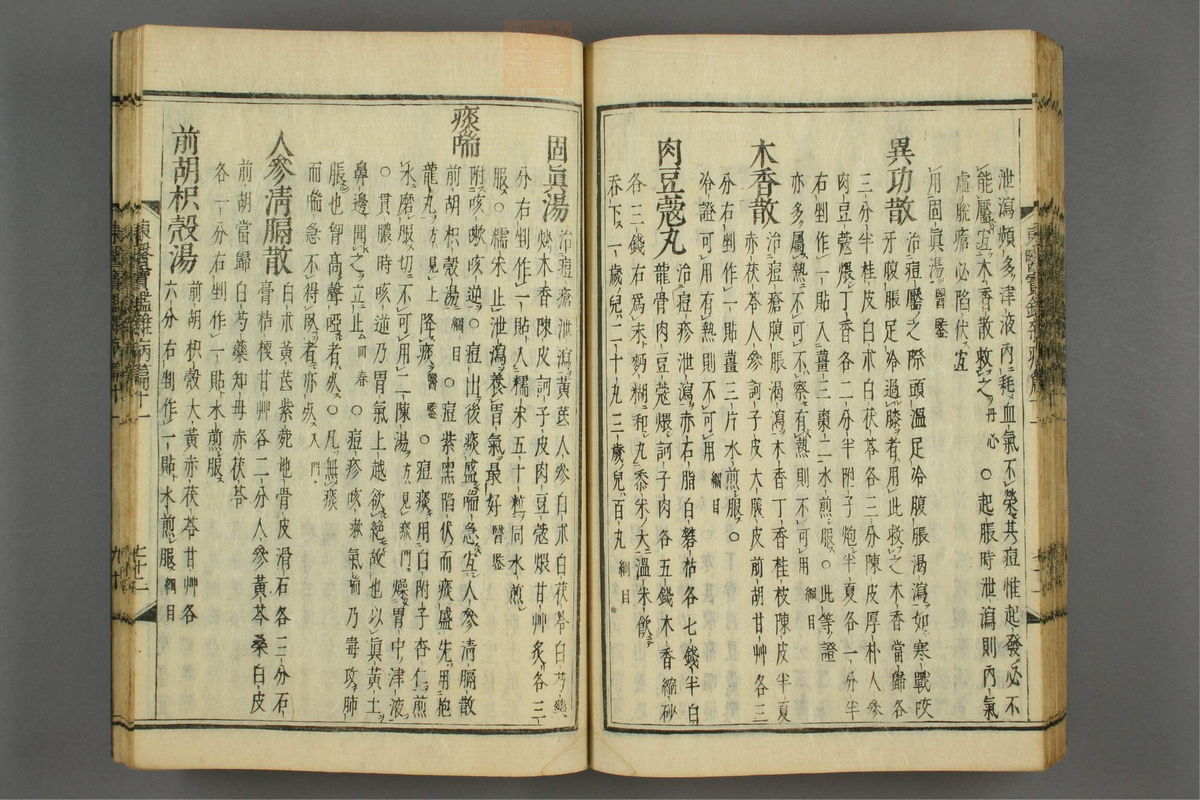 泄瀉頻多津液內耗血氣不榮其痘惟起發必不
能靨宜木香散救之丹心○起脹時泄瀉則內氣
虛脫瘡必陷伏宜
用固眞湯醫鑒
異功散
治痘靨之際頭溫足冷腹脹渴瀉如寒戰咬
牙腹脹足冷過膝者用此救之木香當歸各
三分半桂皮白朮白茯苓各三分陳皮厚朴人參
肉豆蔲煨丁香各二分半附子炮半夏各一分半
右剉作一貼入薑三棗二水煎服○此等證
亦多屬熱不可不察有熱則不可用綱目
木香散
治痘瘡腹脹渴瀉木香丁香桂枝陳皮半夏
赤茯苓人參訶子皮大腹皮前胡甘艸各三
分右剉作一貼薑三片水煎服○
冷證可用有熱則不可用綱目
肉豆蔲丸
治痘疹泄瀉赤石脂白礬枯各七錢半白
龍骨肉豆蔲煨訶子肉各五錢木香縮砂
各三錢右爲末麪糊和丸黍米大溫米飮
吞下一歲兒二十九三歲兒百丸綱目
固眞湯
治痘瘡泄瀉黃芪人參白朮白茯苓白芍藥
煨木香陳皮訶子皮肉豆蔲煨甘艸炙各三
分右剉作一貼入糯米五十粒同水煎
服○糯米止泄瀉養胃氣最好醫鑒
痰喘
附咳嗽咳逆○痘出後痰盛喘急宜人參淸膈散
前胡枳殼湯綱目○痘紫黑陷伏而痰盛先用抱
龍丸方見上降痰醫鑒○痘痰用白附子杏仁煎
水磨服切不可用二陳湯方見痰門燥胃中津液
○貫膿時咳逆乃胃氣上越欲絕故也以眞黃土
鼻邊聞之立止回春○痘疹咳嗽氣喘乃毒攻肺
脹也胷高聲啞者死○凡無痰
而喘急不得臥者亦死入門
人參淸膈散
白朮黃芪紫菀地骨皮滑石各三分石
膏桔梗甘艸各二分人參黃芩桑白皮
前胡當歸白芍藥知母赤茯苓
各一分右剉作一貼水煎服
前胡枳殼湯
前胡枳殼大黃赤茯苓甘艸各
六分右剉作一貼水煎服綱目
東醫寶鑑雜病篇十一
七十二